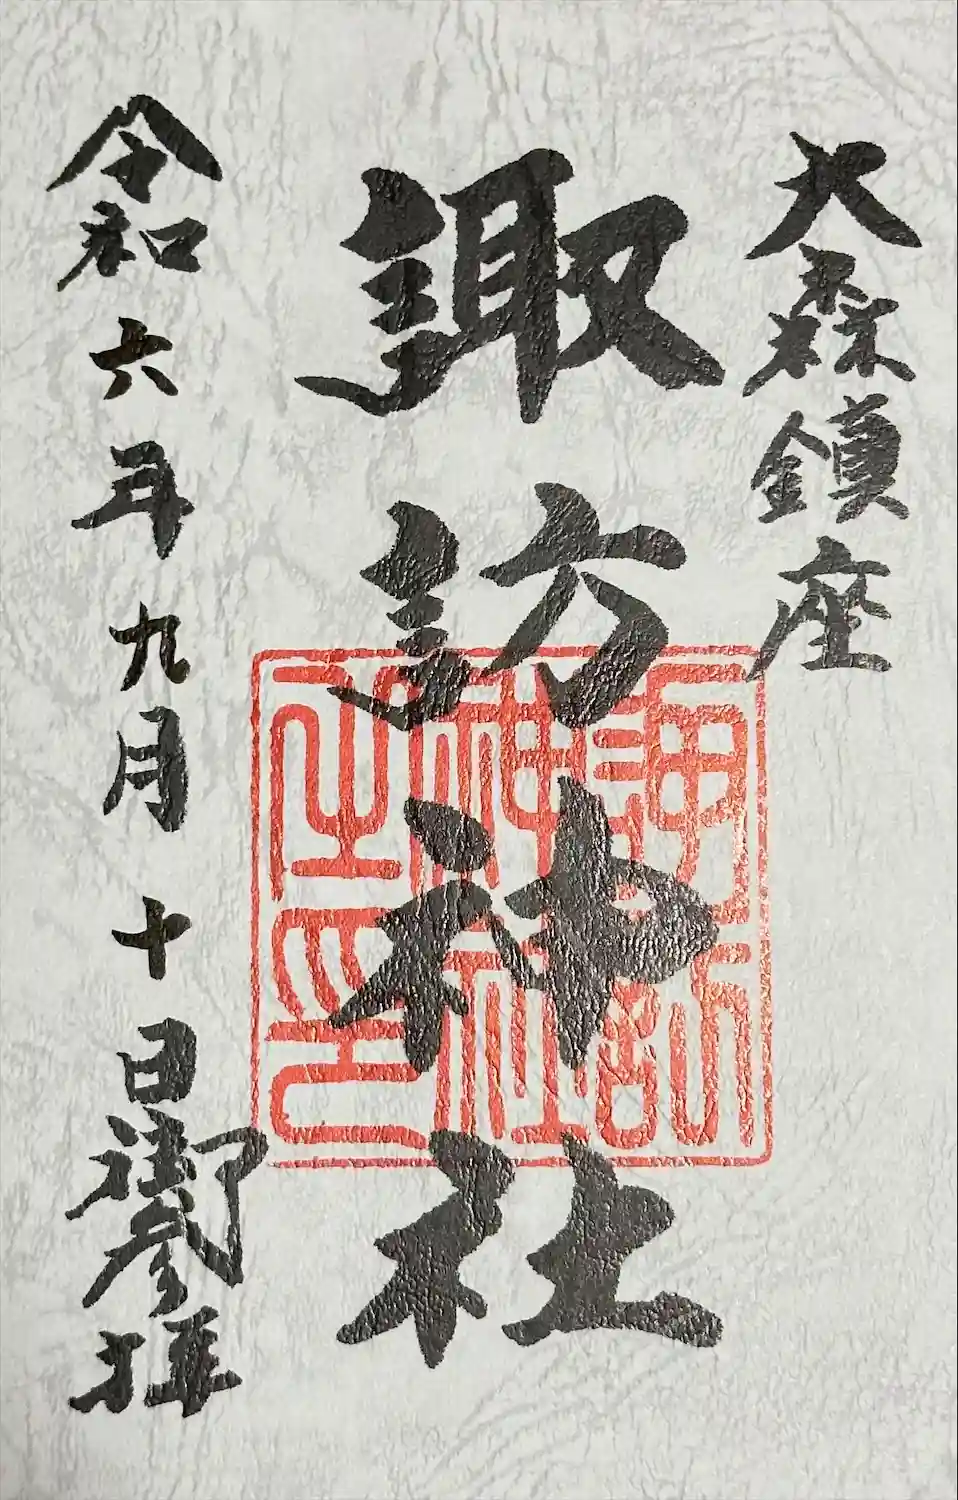 大森鎮座
諏訪神社
諏訪神社之印
令和六年九月十日御参拝